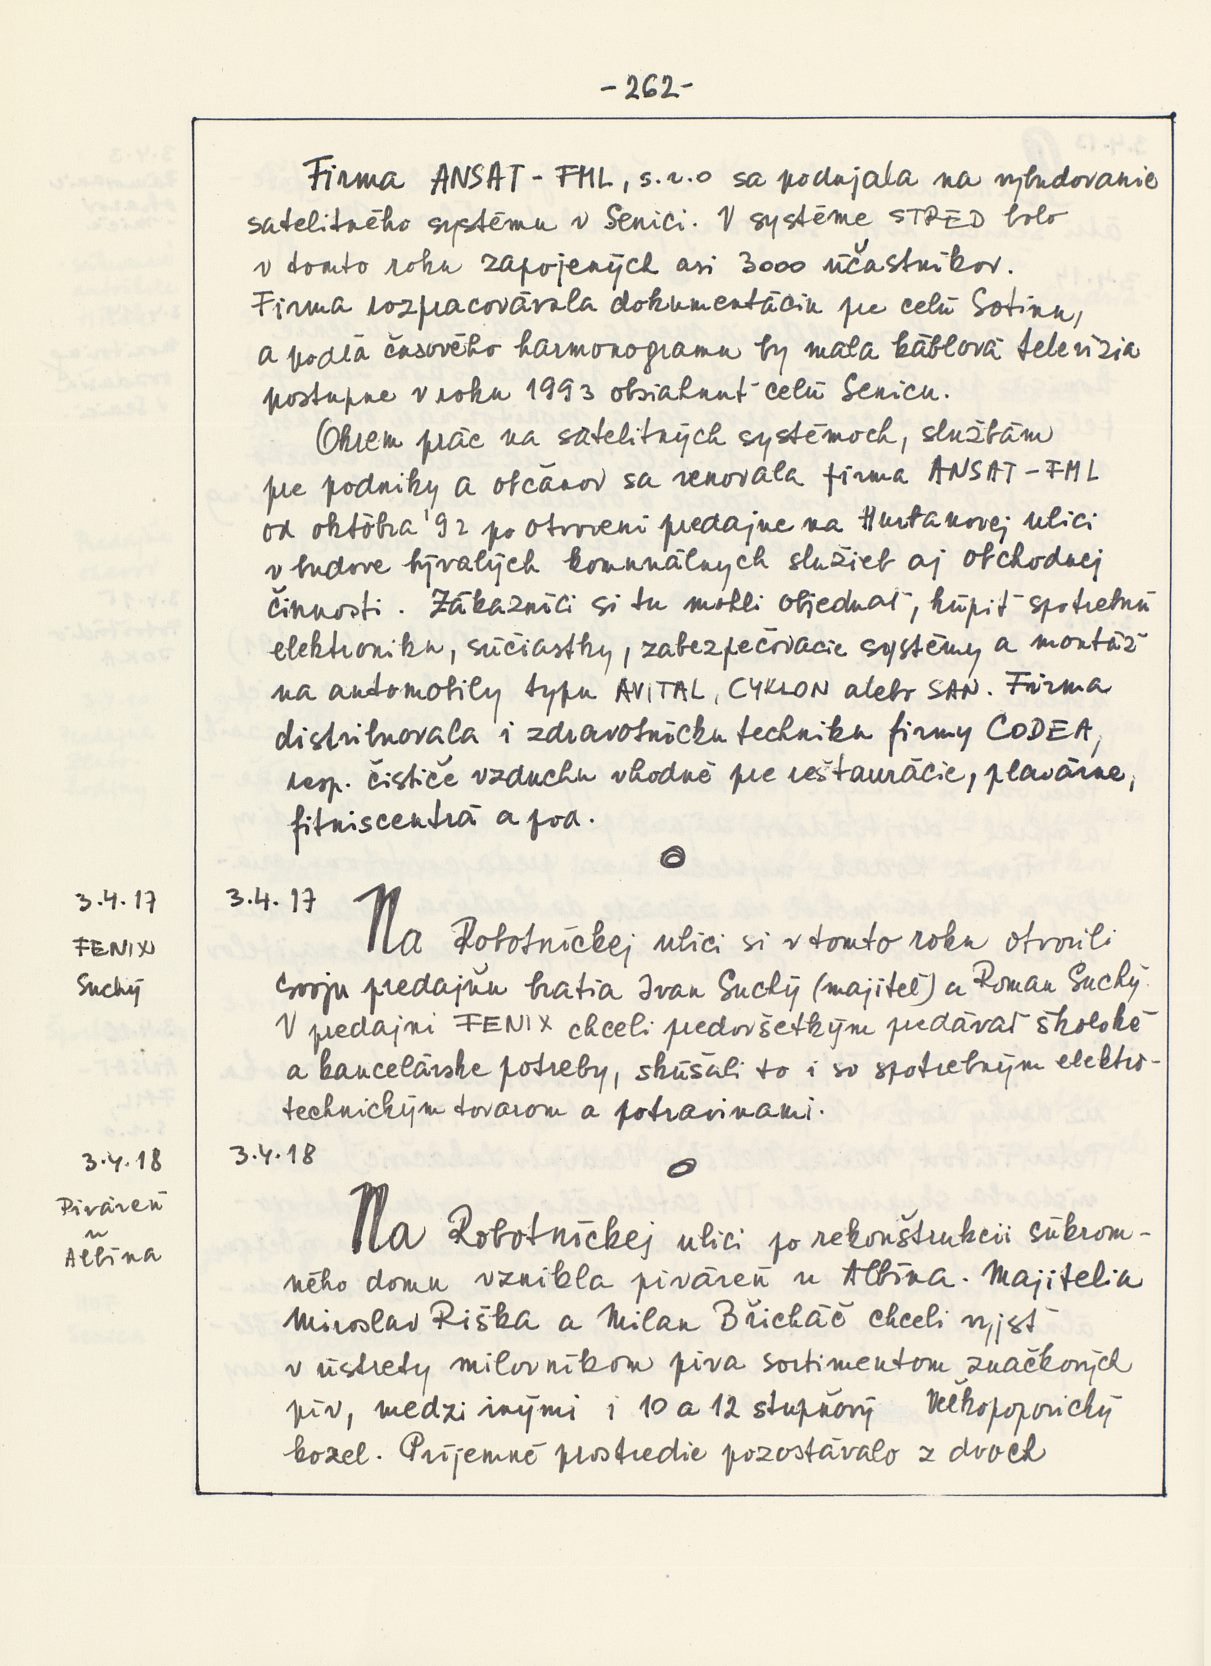 -262-
Firma ANSAT-FML, s.r.o sa podujala na vybudovanie
satelitného systému v Senici. V systéme STRED bolo
v tomto roku zapojených asi 3000 účastníkov.
Firma rozpracovávala dokumentáciu pre celú Sotinu,
a podľa časového harmonogramu by mala káblová televízia
postupne v roku 1993 obsiahnuť celú Senicu.
Okrem prác na satelitných systémoch, službám
pre podniky a občanov sa venovala firma ANSAT-FML
od októbra '92 po otvorení predajne na Hurbanovej ulici
v budove bývalých komunálnych služieb aj obchodnej
činnosti. Zákazníci si tu mohli objednať, kúpiť spotrebnú
elektroniku, súčiastky, zabezpečovacie systémy a montáž
na automobily typu AVITAL, CYKLON alebo SAN. Firma
distribuovala i zdravotnícku techniku firmy CODEA,
resp. čističe vzduchu vhodné pre reštaurácie, plavárne,
fitniscentrá a pod.
3.4.17
FENIX
Suchý
3.4.17
Na Robotníckej ulici si v tomto roku otvorili
svoju predajňu bratia Ivan Suchý (majiteľ) a Roman Suchý.
V predajni FENIX chceli predovšetkým predávať školské
a kancelárske potreby, skúšali to i so spotrebným elektro-
technickým tovarom a potravinami.
3.4.18
Piváreň
u
Albína
3.4.18
Na Robotníckej ulici po rekonštrukcii súkrom-
ného domu vznikla piváreň u Albína. Majitelia
Miroslav Riška a Milan Břicháč chceli vyjsť
v ústrety milovníkom piva sortimentom značkových
pív, medzi inými i 10 a 12 stupňový Veľkopopovický
kozel. Príjemné prostredie pozostávalo z dvoch